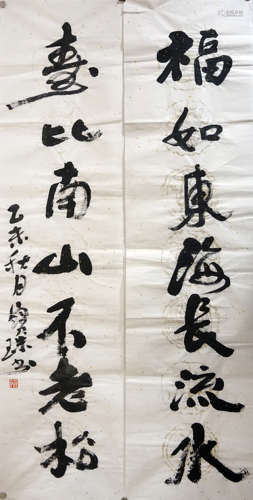 福如東海長流水
壽比南山不老松
乙未秋月寶珠书